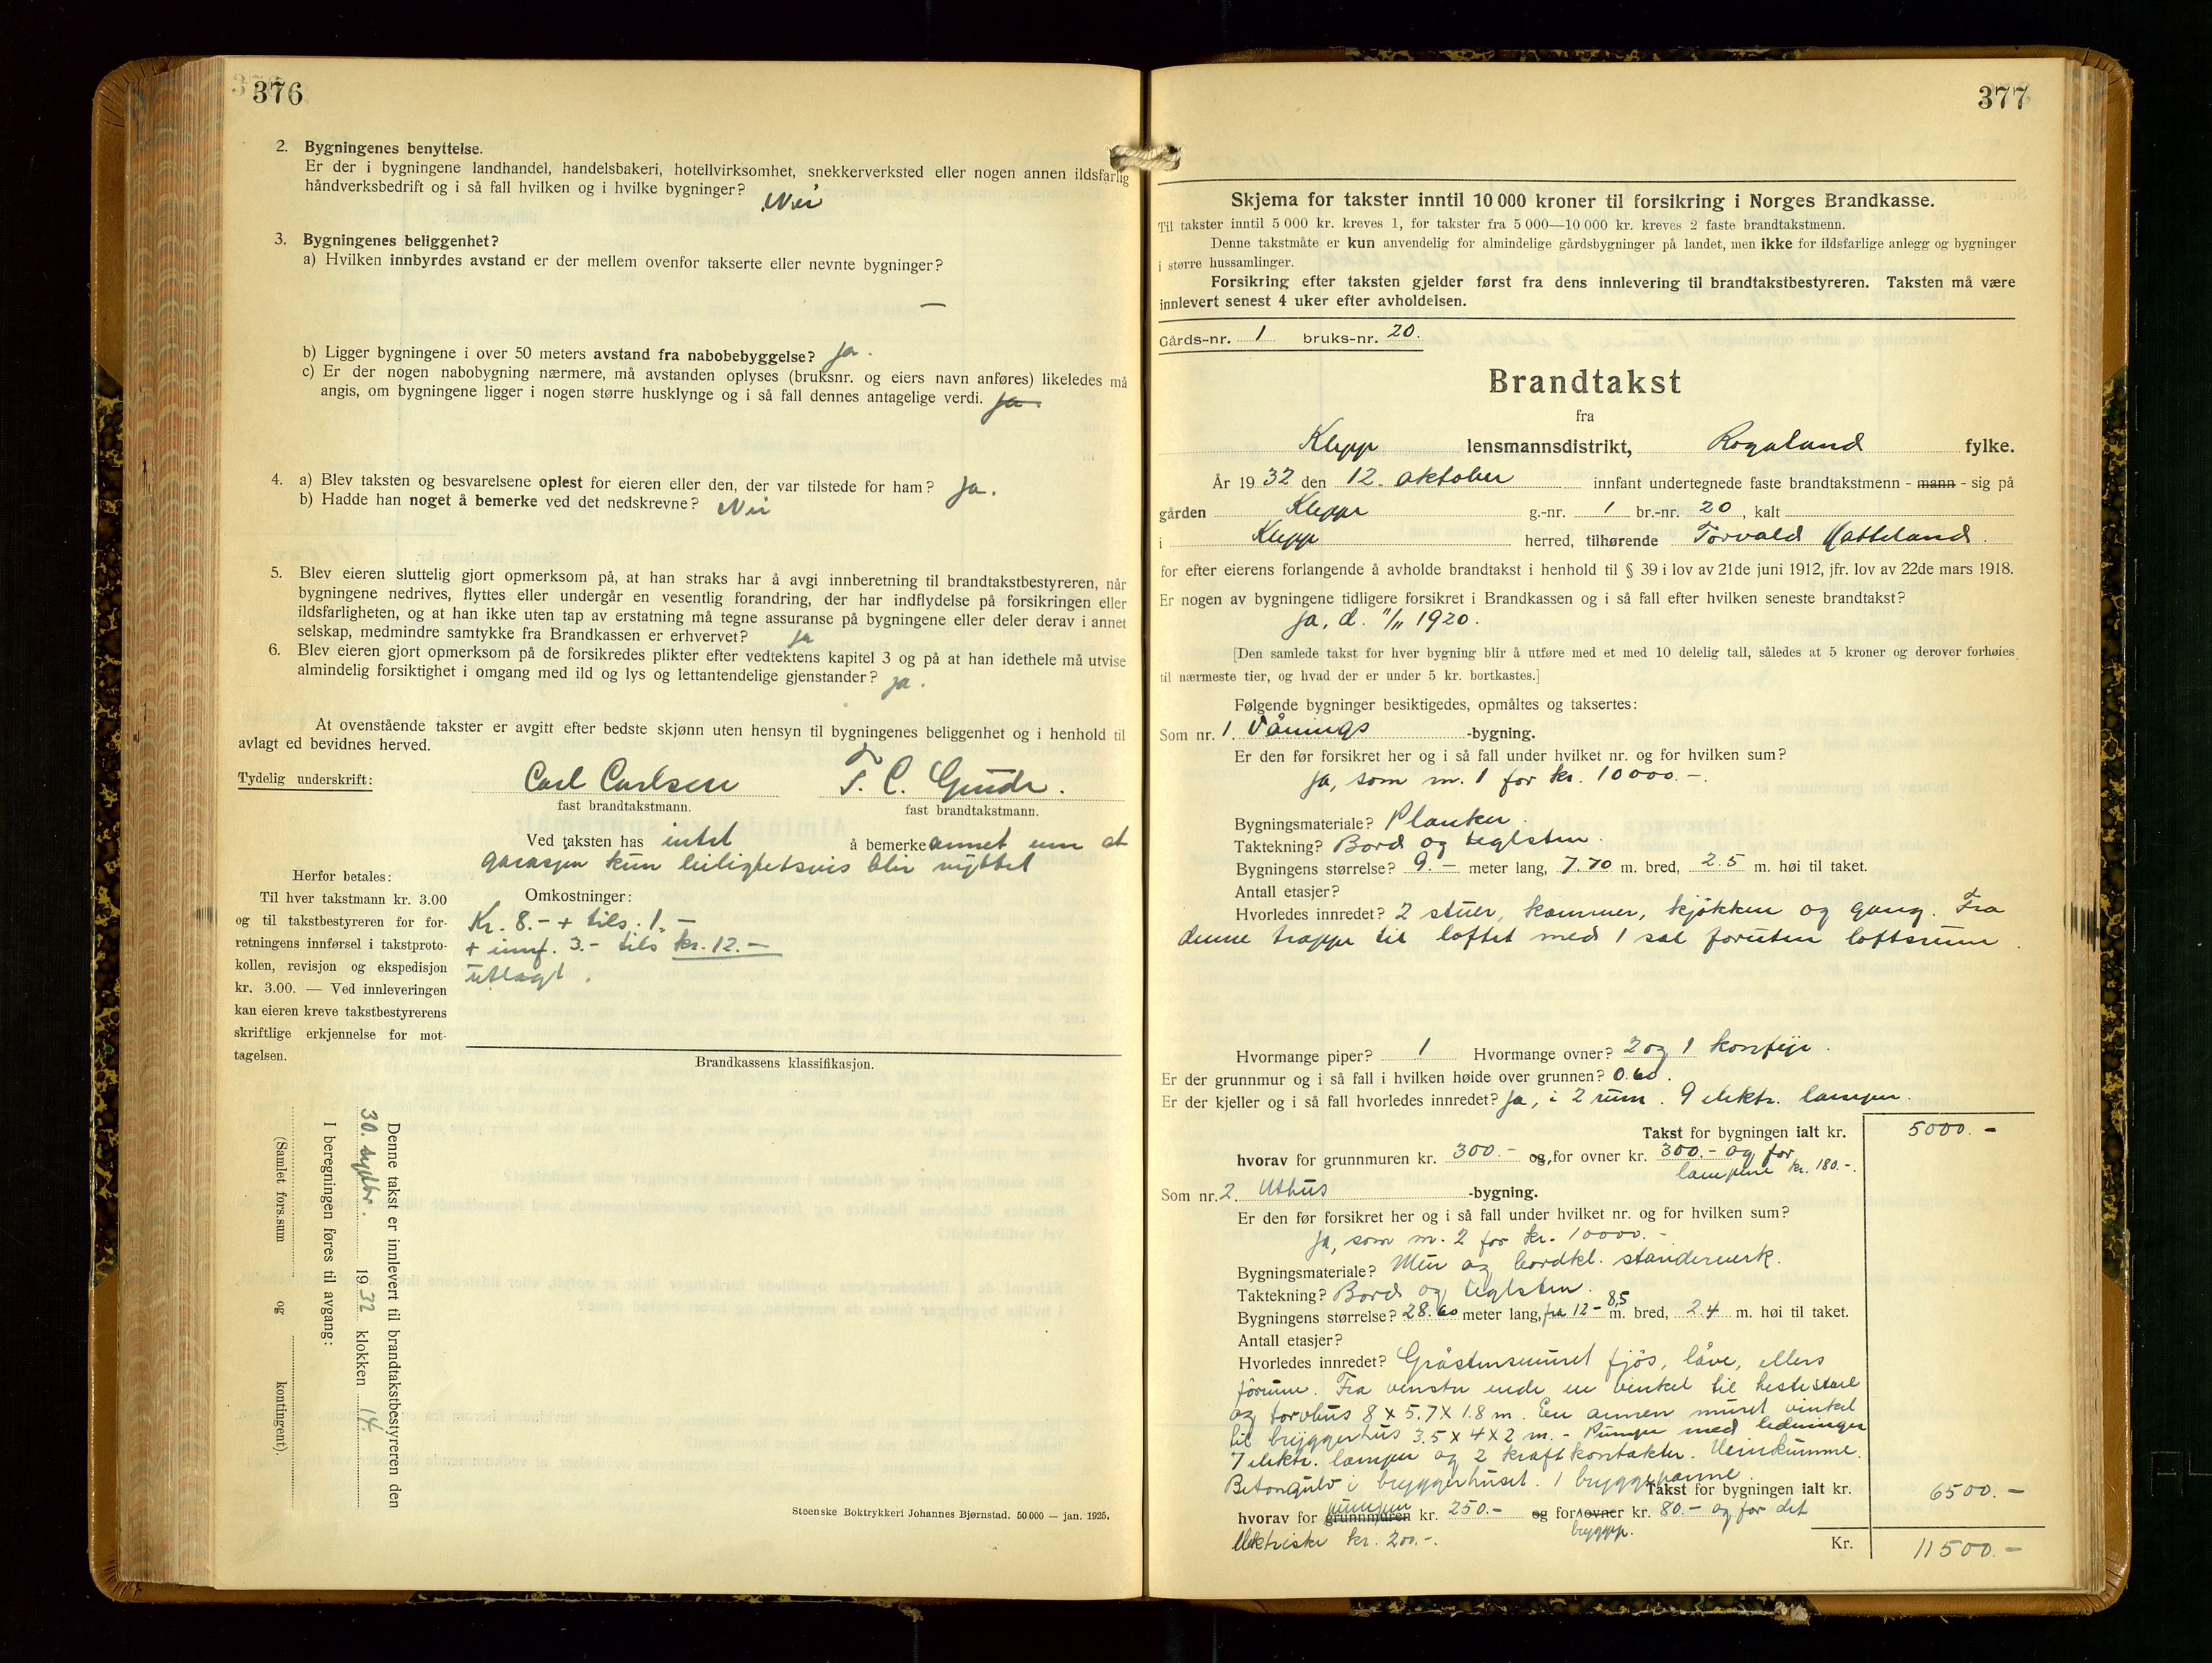 376
2. Bygningenes benyttelse.
Er der i bygningene landhandel, handelsbakeri, hotellvirksomhet, snekkerverksted eller nogen annen ildsfarlig
håndverksbedrift og i så fall hvilken og i hvilke bygninger? Nei
3. Bygningenes beliggenhet?
a) Hvilken innbyrdes avstand er der mellem ovenfor takserte eller nevnte bygninger?
—
b) Ligger bygningene i over 50 meters avstand fra nabobebyggelse? Ja.
c) Er der nogen nabobygning nærmere, må avstanden oplyses (bruksnr. og eiers navn anføres) likeledes må
angis, om bygningene ligger i nogen større husklynge og i så fall dennes antagelige verdi. Ja.
4. a) Blev taksten og besvarelsene oplest for eieren eller den, der var tilstede for ham? Ja.
b) Hadde han noget å bemerke ved det nedskrevne? Nei
5. Blev eieren sluttelig gjort opmerksom på, at han straks har å avgi innberetning til brandtakstbestyreren, når
bygningene nedrives, flyttes eller undergår en vesentlig forandring, der har indflydelse på forsikringen eller
ildsfarligheten, og at han ikke uten tap av erstatning må tegne assuranse på bygningene eller deler derav i annet
selskap, medmindre samtykke fra Brandkassen er erhvervet? ja
6. Blev eieren gjort opmerksom på de forsikredes plikter efter vedtektens kapitel 3 og på at han idethele må utvise
almindelig forsiktighet i omgang med ild og lys og lettantendelige gjenstander? ja.
At ovenstående takster er avgitt efter bedste skjønn uten hensyn til bygningenes beliggenhet og i henhold til
avlagt ed bevidnes herved.
Tydelig underskrift: Carl Carlsen T. C. Gude.
fast brandtakstmann. fast brandtakstmann.
Ved taksten has intet å bemerke annet enn at
garasjen kun leilighetsvis blir nyttet
Herfor betales:
Til hver takstmann kr. 3.00
og til takstbestyreren for for-
retningens innførsel i takstproto-
kollen, revisjon og ekspedisjon
kr. 3.00. — Ved innleveringen
kan eieren kreve takstbestyrerens
skriftlige erkjennelse for mot-
tagelsen.
Omkostninger:
Kr. 8.- + tils. 1.-
+ innf. 3.- tils kr. 12.-
utlagt.
Brandkassens klassifikasjon.
Denne takst er innlevert til brandtakstbestyreren den
30. septbr. 1932 klokken 14.
I beregningen føres til avgang:
(Samlet fors.sum og kontingent)
Steenske Boktrykkeri Johannes Bjørnstad. 50 000 — jan. 1925.
377
Skjema for takster inntil 10 000 kroner til forsikring i Norges Brandkasse.
Til takster inntil 5 000 kr. kreves 1, for takster fra 5 000—10 000 kr. kreves 2 faste brandtakstmenn.
Denne takstmåte er kun anvendelig for almindelige gårdsbygninger på landet, men ikke for ildsfarlige anlegg og bygninger
i større hussamlinger.
Forsikring efter taksten gjelder først fra dens innlevering til brandtakstbestyreren. Taksten må være
innlevert senest 4 uker efter avholdelsen.
Gårds-nr. 1 bruks-nr. 20.
Brandtakst
fra
Klepp lensmannsdistrikt, Rogaland fylke.
År 1932 den 12. oktober innfant undertegnede faste brandtakstmenn - mann - sig på
gården Kleppe g.-nr. 1 br.-nr. 20, kalt
i Klepp herred, tilhørende Torvald Hatteland.
for efter eierens forlangende å avholde brandtakst i henhold til § 39 i lov av 21de juni 1912, jfr. lov av 22de mars 1918.
Er nogen av bygningene tidligere forsikret i Brandkassen og i så fall efter hvilken seneste brandtakst?
Ja, d. 11/11 1920.
[Den samlede takst for hver bygning blir å utføre med et med 10 delelig tall, således at 5 kroner og derover forhøies
til nærmeste tier, og hvad der er under 5 kr. bortkastes.]
Følgende bygninger besiktigedes, opmåltes og taksertes:
Som nr. 1. Vånings -bygning.
Er den før forsikret her og i så fall under hvilket nr. og for hvilken sum?
Ja, som nr. 1 for kr. 10000.-.
Bygningsmateriale? Planker.
Taktekning? Bord og teglsten.
Bygningens størrelse? 9.— meter lang, 7.70 m. bred, 2.5 m. høi til taket.
Antall etasjer?
Hvorledes innredet? 2 stuer, kammer, kjøkken og gang. Fra
denne trappe til loftet med 1 sal foruten loftsrum.
Hvormange piper? 1 Hvormange ovner? 2 og 1 komfyr.
Er der grunnmur og i så fall i hvilken høide over grunnen? 0.60.
Er der kjeller og i så fall hvorledes innredet? Ja, i 2 rum. 9 elektr. lamper.
Takst for bygningen ialt kr. 5000.-
hvorav for grunnmuren kr. 300.- og, for ovner kr. 300.- og for
lampene kr. 180.-.
Som nr. 2. Uthus -bygning.
Er den før forsikret her og i så fall under hvilket nr. og for hvilken sum?
Ja, som nr. 2 for kr. 10000.-
Bygningsmateriale? Mur og bordkl. stenderverk.
Taktekning? Bord og teglsten.
Bygningens størrelse? 28.60 meter lang, fra 12 - 8,5 m. bred, 2.4 m. høi til taket.
Antall etasjer?
Hvorledes innredet? Gråstensmuret fjøs, låve, ellers
fôrrum. Fra venstre ende en vinkel til hestestall
og torvhus 8 x 5.7 x 1.8 m. En annen muret vinkel
til bryggerhus 3.5 x 4 x 2 m. - Pumpe med ledninger
7 elektr. lamper og 2 kraftkontakter. Urinkumme.
Betongulv i bryggerhuset. 1 bryggepanne.
Takst for bygningen ialt kr. 6500.-
hvorav for grunnmuren pumpen kr. 250.- og for ovner bryggep. kr. 80.- og for det
elektriske kr. 200.-.
Kr. 11500.-